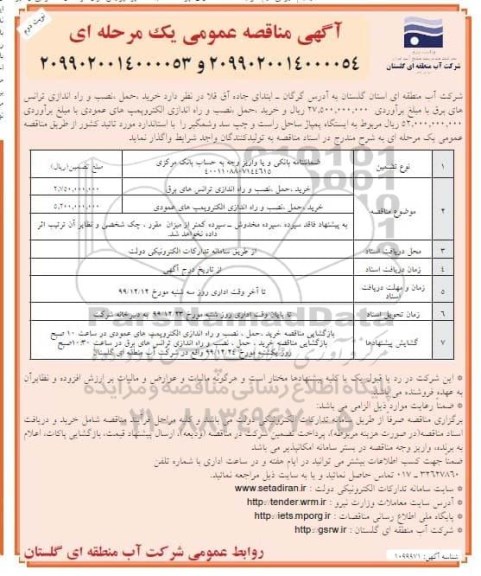 آگهی مناقصه عمومی یک مرحله ای
نوبت دوم
۲۰۹۹۰۲۰۰۱۴۰۰۰۰۵۴ و ۲۰۹۹۰۲۰۰۱۴۰۰۰۰۵۳
شرکت آب منطقه ای گلستان
شرکت آب منطقه ای استان گلستان به آدرس گرگان ـ ابتدای جاده آق قلا در نظر دارد خرید ،حمل ،نصب و راه اندازی ترانس
های برق با مبلغ برآوردی ۲۷,۵۰۰,۰۰۰,۰۰۰ ریال و خرید ،حمل ،نصب و راه اندازی الکتروپمپ های عمودی با مبلغ برآوردی
۵۲,۰۰۰,۰۰۰,۰۰۰ ریال مربوط به ایستگاه پمپاژ ساحل راست و چپ سد وشمگیر را با استاندارد مورد تائید کشور از طریق مناقصه
عمومی یک مرحله ای به شرح مندرج در اسناد مناقصه به تولیدکنندگان واجد شرایط واگذار نماید
۱ نوع تضمین ضمانتنامه بانکی و یا واریز وجه به حساب بانک مرکزی مبلغ تضمین(ریال)
۲ موضوع مناقصه خرید ،حمل ،نصب و راه اندازی ترانس های برق
خرید ،حمل ،نصب و راه اندازی الکتروپمپ های عمودی
به پیشنهاد فاقد سپرده ،سپرده مخدوش ـ سپرده کمتر از میزان مقرر ، چک شخصی و نظایر آن ترتیب اثر
داده نخواهد شد.
۳ محل دریافت اسناد از طریق سامانه تدارکات الکترونیکی دولت
۴ زمان دریافت اسناد از تاریخ درج آگهی
۵ زمان و مهلت دریافت اسناد تا آخر وقت اداری روز سه شنبه مورخ ۹۹/۱۲/۱۲
۶ زمان تحویل اسناد تا پایان وقت اداری روز شنبه مورخ ۹۹/۱۲/۲۳ به دبیرخانه شرکت
۷ گشایش پیشنهادها بازگشایی مناقصه خرید ،حمل ، نصب و راه اندازی الکتروپمپ های عمودی در ساعت ۱۰ صبح
بازگشایی مناقصه خرید ، حمل ، نصب و راه اندازی ترانس های برق در ساعت ۱۰:۳۰صبح
روز یکشنبه مورخ ۹۹/۱۲/۲۴ واقع در شرکت آب منطقه ای گلستان
* این شرکت در رد یا قبول یک یا کلیه پیشنهادها مختار است و هرگونه مالیات و عوارض و مالیات بر ارزش افزوده و نظایرآن
به عهده فروشنده می باشد
* ضمنا رعایت موارد ذیل الزامی می باشد:
برگزاری مناقصه صرفا از طریق سامانه تدارکات الکترونیکی دولت می باشد و کلیه مراحل فرآیند مناقصه شامل خرید و دریافت
اسناد مناقصه(در صورت هزینه مربوطه)، پرداخت تضمین شرکت در مناقصه (ودیعه)، ارسال پیشنهاد قیمت، بازگشایی پاکات، اعلام
به برنده، واریز وجه مناقصه در بستر سامانه امکانپذیر می باشد
ضمنا جهت کسب اطلاعات بیشتر می توانید در ایام هفته و در ساعت اداری با شماره تلفن
۳۲۶۲۷۸۶۰ ـ ۰۱۷ تماس حاصل نمائید و یا به سایت ذیل مراجعه نمائید.
* سایت سامانه تدارکات الکترونیکی دولت : www.setadiran.ir
* آدرس سایت معاملات وزارت نیرو : http://tender.wrm.ir
* پایگاه ملی اطلاع رسانی مناقصات : http://iets.mporg.ir
* شرکت آب منطقه ای گلستان : http://gsrw.ir
روابط عمومی شرکت آب منطقه ای گلستان
شناسه آگهی: ۱۰۹۹۹۷۱
ParsNamadData
۰۲۱-۸۸۳۴۹۶۷۰